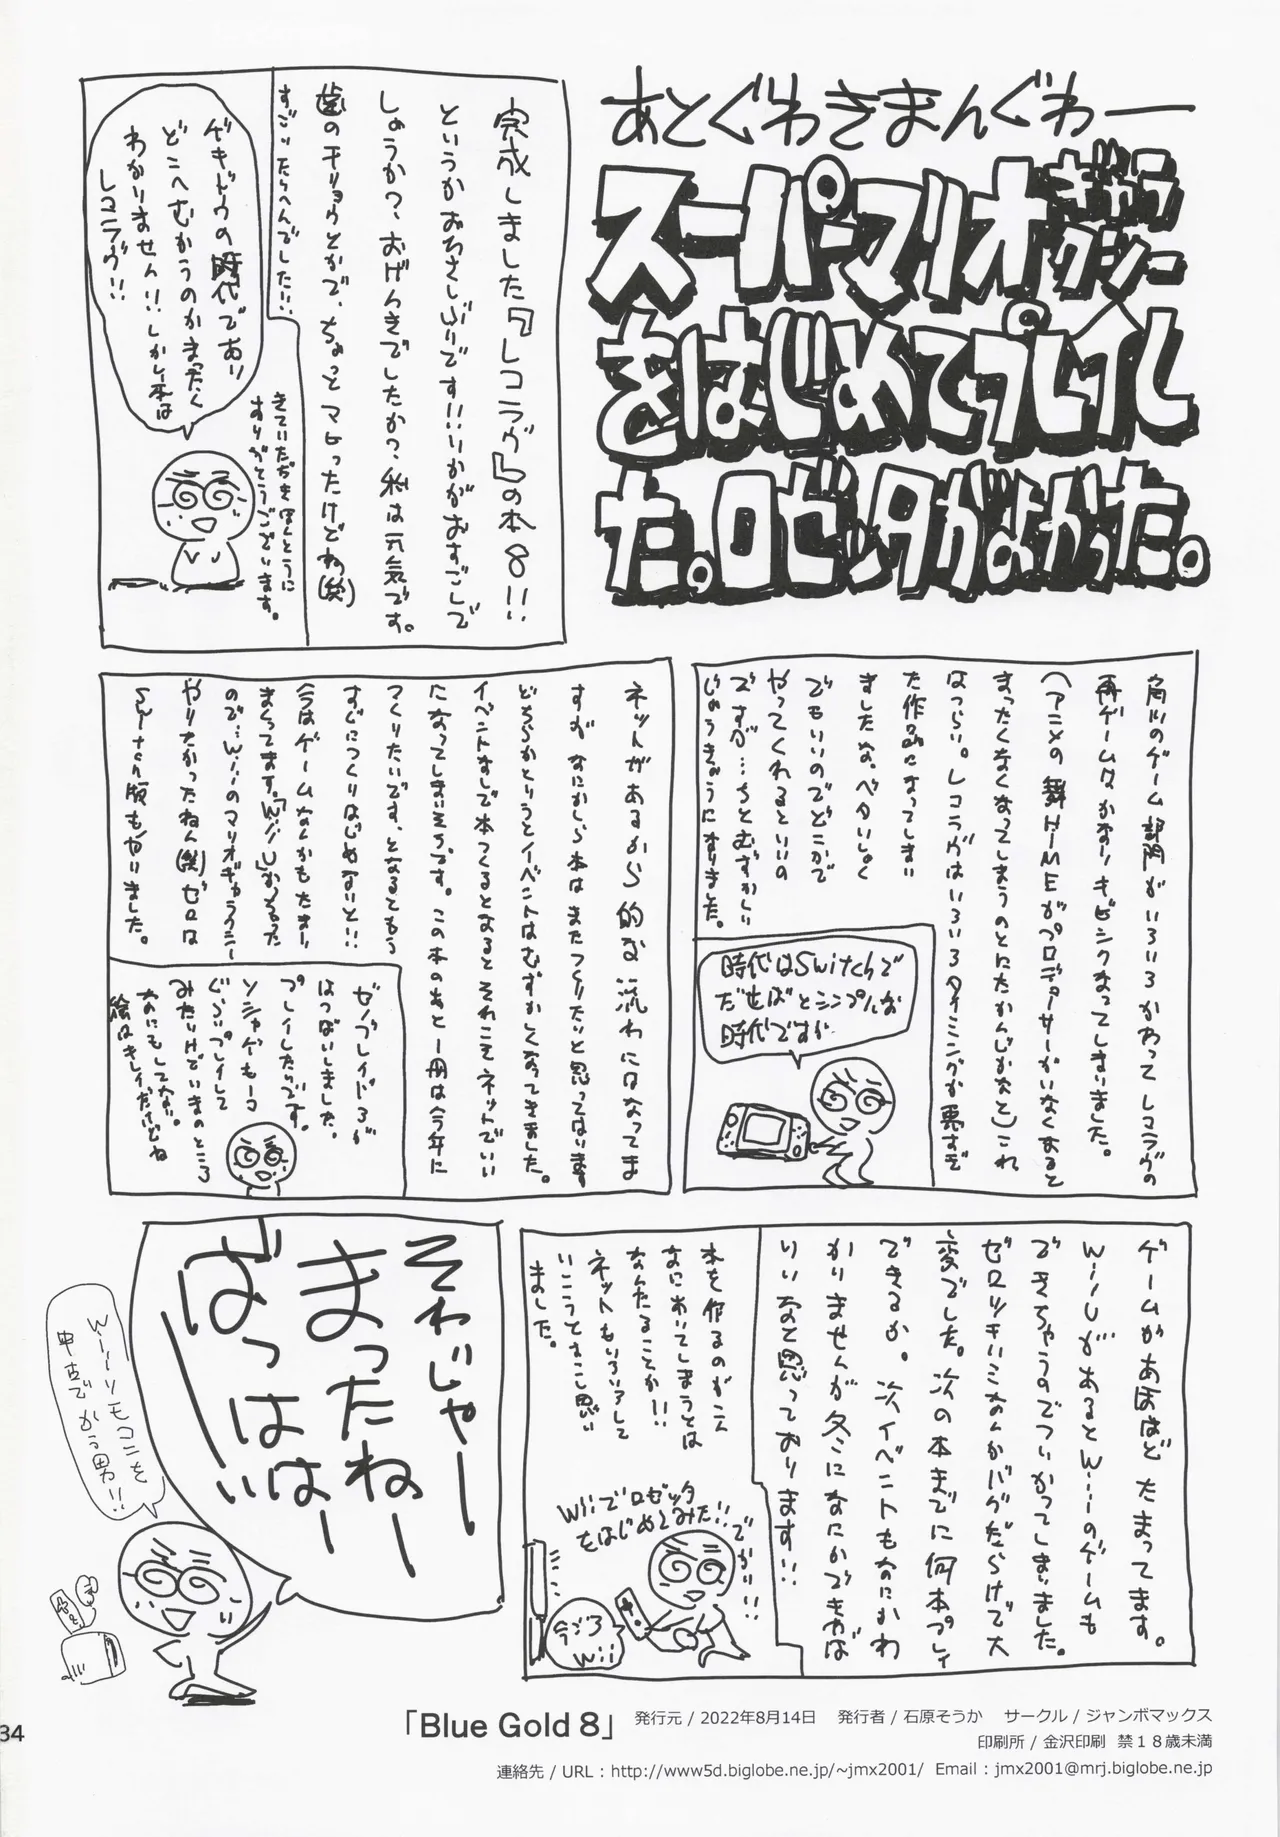 あとぐわきまんぐわー
スーパーマリオギャラクシー
をはじめてプレイし
た。ロゼッタがよかった。
完成しました『レコラヴ』の本8!!
というかおひさしぶりです!!いかがおすごしで
しょうか?、おげんきでしたか?私は元気です。
歯のチリョウとかで、ちょっとマヒったけどね(笑)
すごいたいへんでした!!
ゲキドウの時代であり
どこへむかうのかまったく
わかりません!!しかし本は
レコラヴ!!
きていただきほんとうに
ありがとうございます。
角川のゲーム部門がいろいろかわってレコラヴの
再ゲームはかなりキビシクなってしまいました。
(アニメの舞HiMEがプロデューサーがいなくなると
まったくなくなってしまうのとにたかんじかなと)これ
はつらい。レコラヴはいろいろタイミングが悪すぎ
た作品になってしまい
ましたな。ベタいしょく
でもいいのでどこかで
やってくれるといいの
ですが…ちとむずかしい
じょうきょうになりました。
時代はSwitchで
だせばとシンプルな
時代ですが
ネットがあるから的な流れにはなってま
すが なにかしら本はまたつくりたいと思ってはいます
どちらかというとイベントはむずかしくなってきました。
イベントなしで本つくるとなるとそれこそネットでいい
になってしまいそうです。この本のあと一冊は今年に
つくりたいです、となるともう
すぐにつくりはじめないと!!
今はゲームなんかもたまり
まくってます。「Wii」しかなかった
ので…Wiiのマリオギャラクシー
やりたかったねん(笑)ゼロは
Switch版もやりました。
ゼノブレイド3が
はつばいしました。
プレイしたいです。
ソシャゲも一コ
ぐらいプレイして
みたいけどいまのところ
なにもしてない。
絵はキレイだけどね
ゲームがあほほどたまってます。
WiiUがあるとWiiのゲームも
できちゃうのでついかってしまいました。
ゼロリキいミなんかバグだらけで大
変でした。次の本までに何本プレイ
できるか。次イベントもなにかわ
かりませんが冬になにかできれば
いいなと思っております!!
本を作るのがこん
なにおいてしまうとは
なんたることか!!
ネットもいろいろして
いこうとすこし思い
ました。
Wiiでロゼッタ
をはじめてみた!!
でかい!!
今ごろ
Wii
それじゃー
まったねー
ばっはは〜い
Wiiリモコンを
中古でかう男!!
34
「Blue Gold 8」 発行元 / 2022年8月14日 発行者 / 石原そうか サークル / ジャンボマックス
印刷所 / 金沢印刷 禁18歳未満
連絡先 / URL : http://www5d.biglobe.ne.jp/~jmx2001/ Email : jmx2001@mrj.biglobe.ne.jp